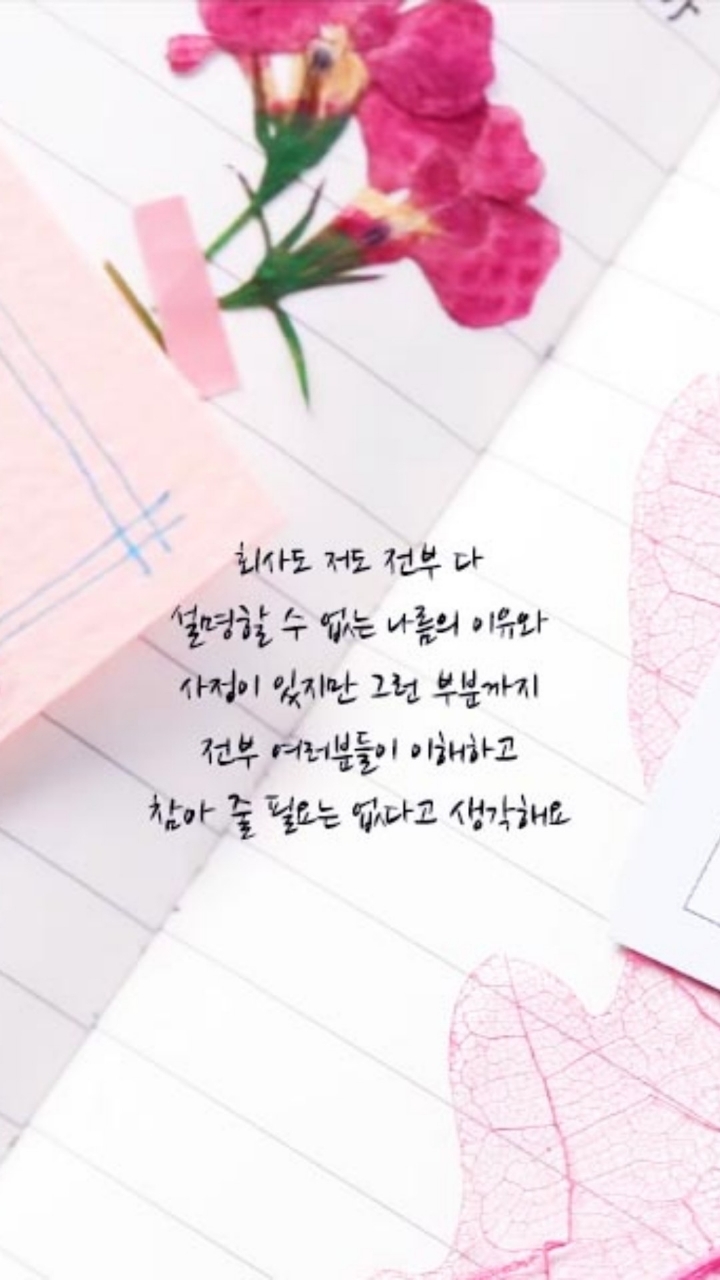 회사도 저도 전부 다
설명할 수 없는 나름의 이유와
사정이 있지만 그런 부분까지
전부 여러분들이 이해하고
참아 줄 필요는 없다고 생각해요